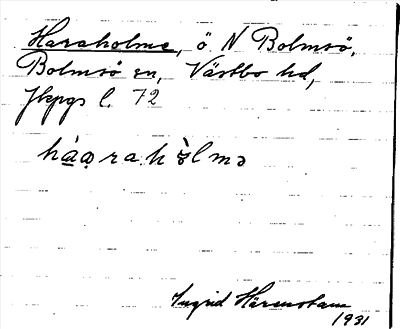 Haraholme, ö N Bolmsö,
Bolmsö sn, Västbo hd,
Jkpgs l. 72
hàa̧rahòlmə
Ingrid Härenstam
1931